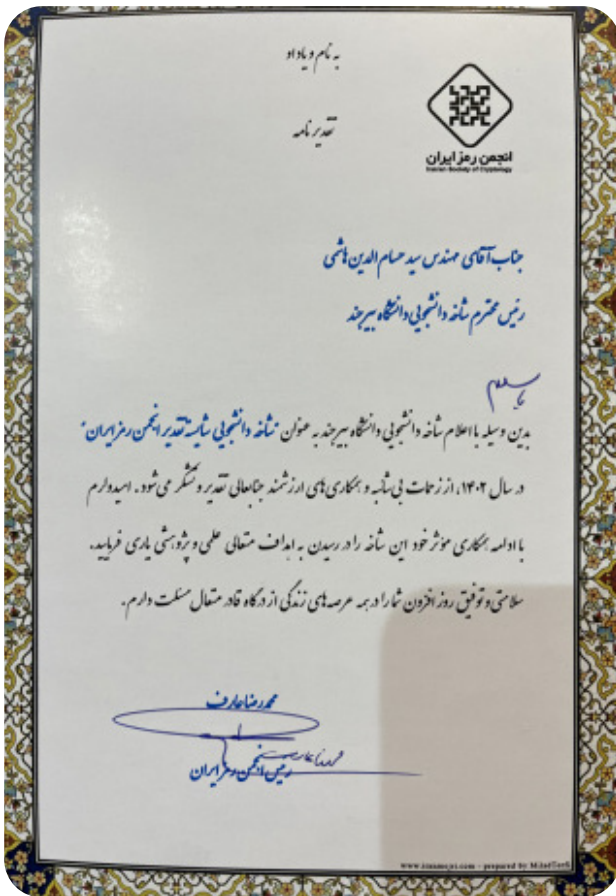 به نام و یاد او
تقدیر نامه
انجمن رمز ایران
Iranian Society of Cryptology
جناب آقای مهندس سید حسام الدین هاشمی
رئیس محترم شاخه دانشجویی دانشگاه بیرجند
با سلام
بدین وسیله با اعلام شاخه دانشجویی دانشگاه بیرجند به عنوان "شاخه دانشجویی شایسته تقدیر انجمن رمز ایران"
در سال ۱۴۰۲، از زحمات بی‌شائبه و همکاری‌های ارزشمند جنابعالی تقدیر و تشکر می‌شود. امیدوارم
با ادامه همکاری مؤثر خود این شاخه را در رسیدن به اهداف متعالی علمی و پژوهشی یاری فرمایید.
سلامتی و توفیق روز افزون شما را در همه عرصه‌های زندگی از درگاه قادر متعال مسئلت دارم.
محمدرضا عارف
رئیس انجمن رمز ایران